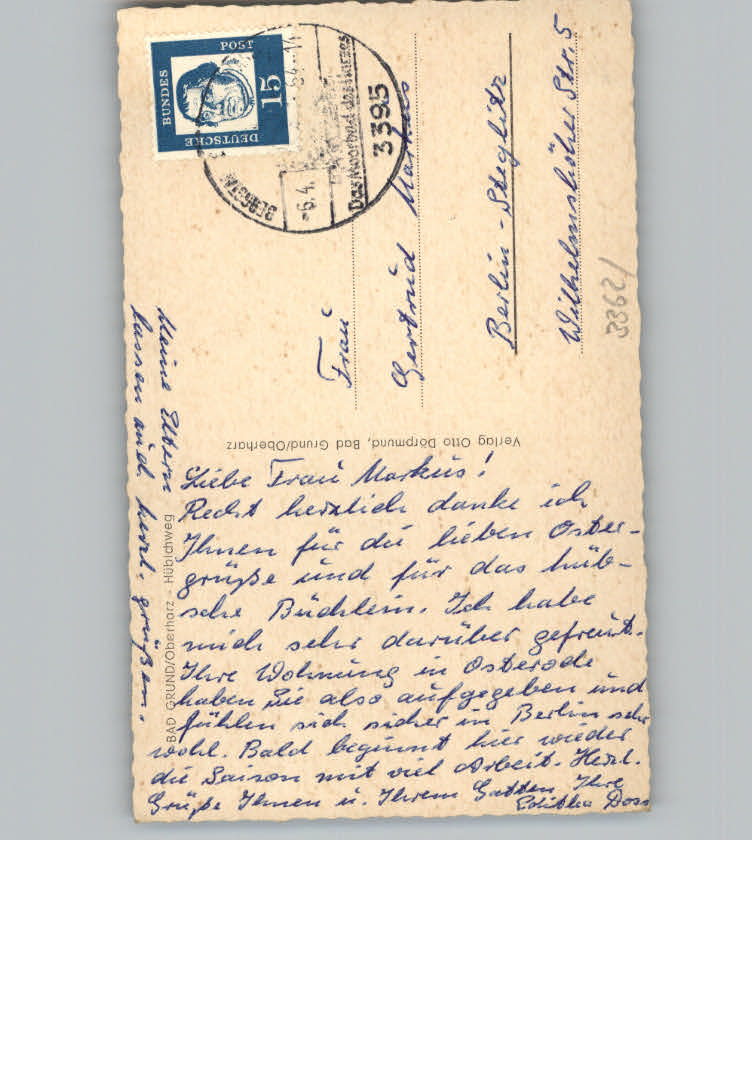 DEUTSCHE
BUNDES
POST
15
3395
-6.4.
64-14
Das Moorbad des Harzes
Frau
Gertrud Markus
Berlin-Steglitz
Wilhelmshöher Str. 5
33621
Verlag Otto Dörpmund, Bad Grund/Oberharz
BAD GRUND/Oberharz - Hübichweg
Liebe Frau Markus!
Recht herzlich danke ich
Ihnen für die lieben Oster-
grüße und für das hüb-
sche Büchlein. Ich habe
mich sehr darüber gefreut.
Ihre Wohnung in Osterode
haben Sie also aufgegeben und
fühlen sich sicher in Berlin sehr
wohl. Bald beginnt hier wieder
die Saison mit viel Arbeit. Herzl.
Grüße Ihnen u. Ihrem Gatten Ihre
Editha Doss
Meine Eltern
lassen auch herzl. grüßen.